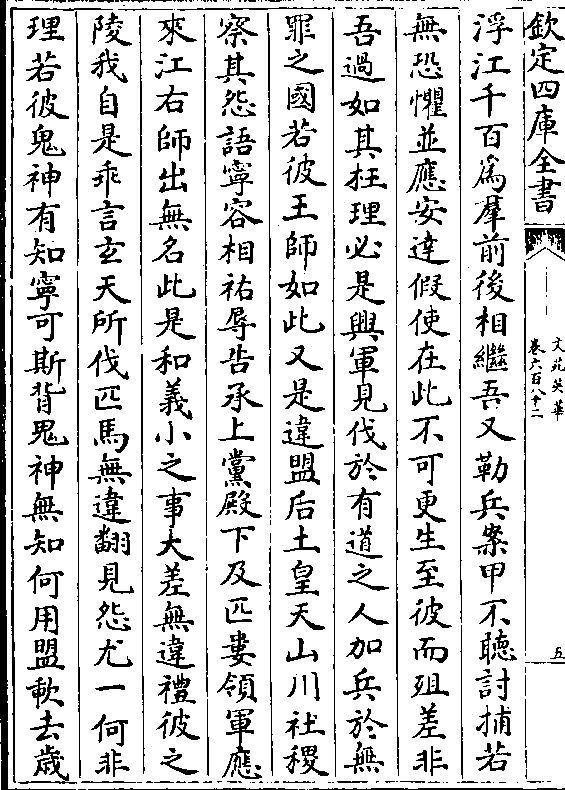 欽定四庫全書
文苑英華
卷六百八十二
五
浮江千百為羣前後相繼吾又勒兵案甲不聽討捕若
無恐懼並應安達假使在此不可更生至彼而殂差非
吾過如其枉理必是興軍見伐於有道之人加兵於無
罪之國若彼王師如此又是違盟后土皇天山川社稷
察其怨語寧容相祐辱告承上黨殿下及匹婁領軍應
來江右師出無名此是和義小之事大差無違禮彼之
陵我自是乖言玄天所伐匹馬無違翻見怨尤一何非
理若彼鬼神有知寧可斯背鬼神無知何用盟歃去歳